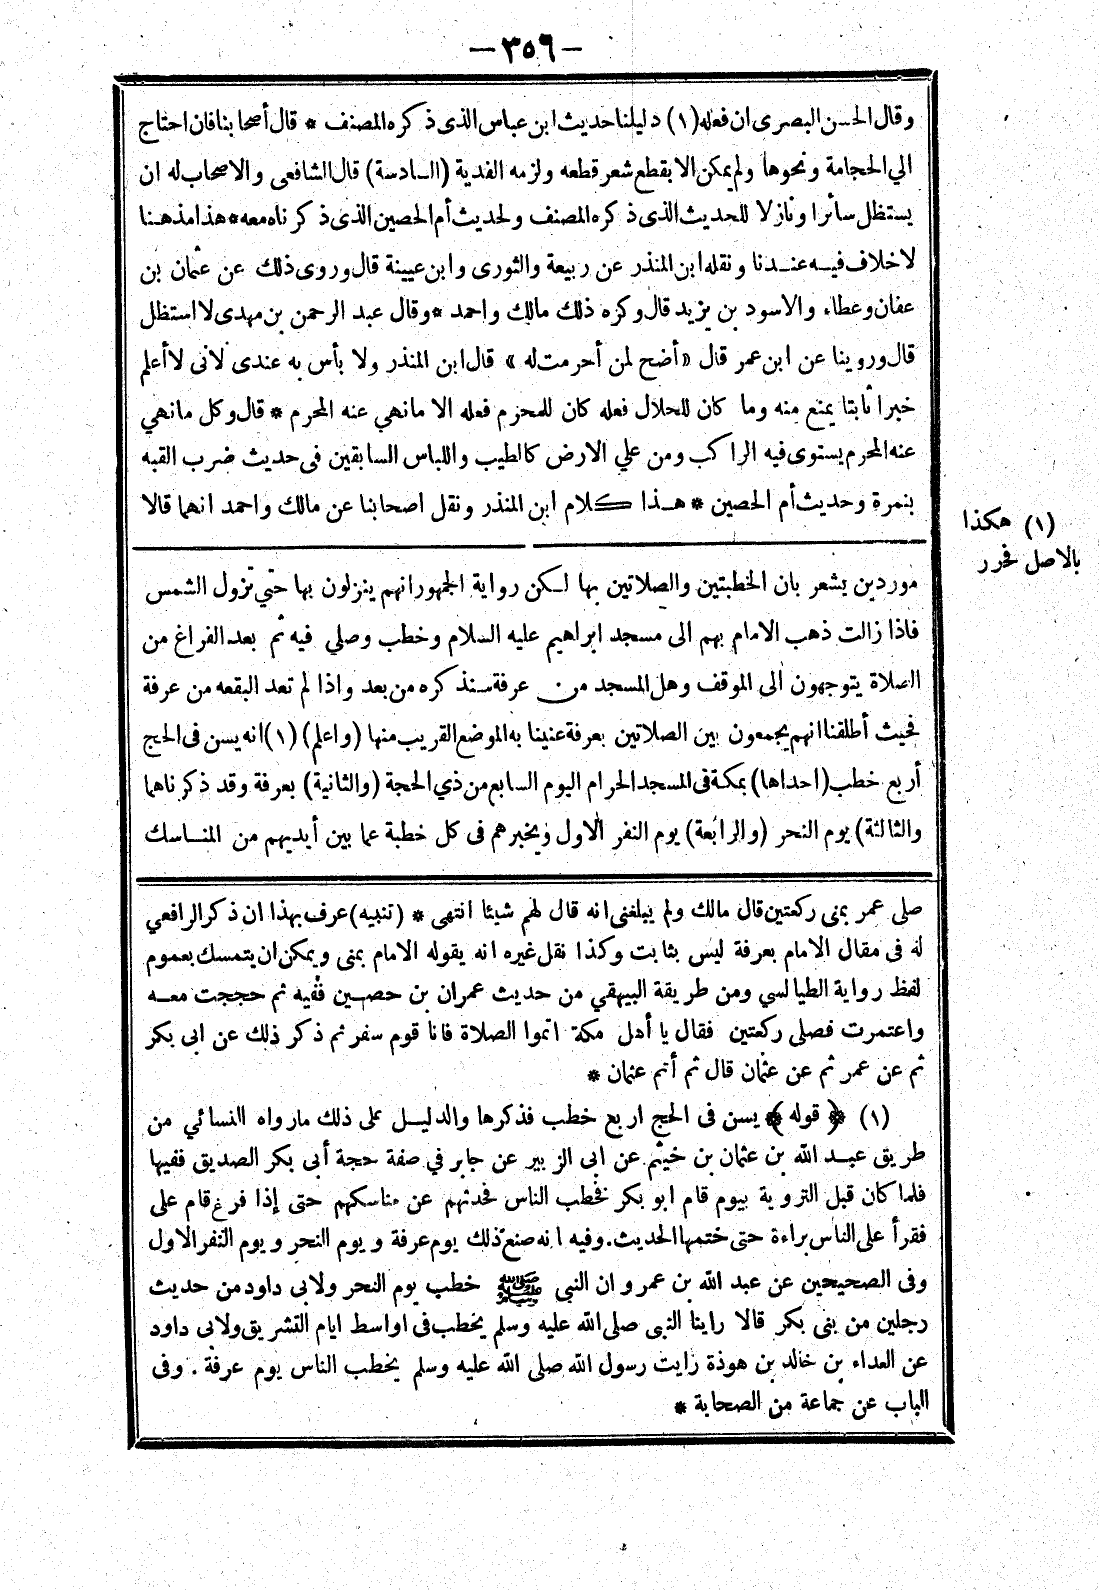 — ٣٥٦ —
وقال الحسن البصرى ان فعله (١) دليلنا حديث ابن عباس الذى ذكره المصنف * قال أصحابنا فان احتاج
الي الحجامة ونحوها ولم يمكن الا بقطع شعر قطعه ولزمه الفدية (السادسة) قال الشافعى والاصحاب له ان
يستظل سائرا ونازلا للحديث الذى ذكره المصنف ولحديث أم الحصين الذى ذكرناه معه * هذا مذهبنا
لا خلاف فيه عندنا ونقله ابن المنذر عن ربيعة والثورى وابن عيينة قال وروى ذلك عن عثمان بن
عفان وعطاء والاسود بن يزيد قال وكره ذلك مالك واحمد * وقال عبد الرحمن بن مهدى لا استظل
قال وروينا عن ابن عمر قال «أضح لمن أحرمت له» قال ابن المنذر ولا بأس به عندى لانى لا أعلم
خبرا ثابتا يمنع منه وما كان للحلال فعله كان للمحرم فعله الا مانهي عنه المحرم * قال وكل مانهي
عنه المحرم يستوى فيه الراكب ومن علي الارض كالطيب واللباس السابقين فى حديث ضرب القبه
بنمرة وحديث أم الحصين * هذا كلام ابن المنذر ونقل اصحابنا عن مالك واحمد انهما قالا
(١) هكذا
بالاصل فحرر
موردين يشعر بان الخطبتين والصلاتين بها لكن رواية الجمهور انهم ينزلون بها حتي تزول الشمس
فاذا زالت ذهب الامام بهم الى مسجد ابراهيم عليه السلام وخطب وصلي فيه ثم بعد الفراغ من
الصلاة يتوجهون الى الموقف وهل المسجد من عرفة سنذكره من بعد واذا لم تعد البقعه من عرفة
فحيث أطلقنا انهم يجمعون بين الصلاتين بعرفة عنينا به الموضع القريب منها (واعلم) (١) انه يسن فى الحج
أربع خطب (احداها) بمكة فى المسجد الحرام اليوم السابع من ذي الحجة (والثانية) بعرفة وقد ذكرناهما
والثالثة) يوم النحر (والرابعة) يوم النفر الاول ويخبرهم فى كل خطبة عما بين أيديهم من المناسك
صلى عمر بمنى ركعتين قال مالك ولم يبلغنى انه قال لهم شيئا انتهى * (تنبيه) عرف بهذا ان ذكر الرافعي
له فى مقال الامام بعرفة ليس بثابت وكذا نقل غيره انه يقوله الامام بمنى ويمكن ان يتمسك بعموم
لفظ رواية الطيالسي ومن طريقة البيهقي من حديث عمران بن حصين ففيه ثم حججت معه
واعتمرت فصلى ركعتين فقال يا أهل مكة اتموا الصلاة فانا قوم سفر ثم ذكر ذلك عن ابى بكر
ثم عن عمر ثم عن عثمان قال ثم أتم عثمان *
(١) ﴿ قوله ﴾ يسن فى الحج اربع خطب فذكرها والدليل على ذلك مارواه النسائي من
طريق عبد الله بن عثمان بن خيثم عن ابى الزبير عن جابر في صفة حجة أبى بكر الصديق ففيها
فلما كان قبل التروية بيوم قام ابو بكر فخطب الناس فحدثهم عن مناسكهم حتى إذا فرغ قام على
فقرأ على الناس براءة حتى ختمها الحديث . وفيه انه صنع ذلك يوم عرفة ويوم النحر ويوم النفر الاول
وفى الصحيحين عن عبد الله بن عمرو ان النبى ﷺ خطب يوم النحر ولابى داود من حديث
رجلين من بنى بكر قالا راينا النبى صلى الله عليه وسلم يخطب فى اواسط ايام التشريق ولابى داود
عن العداء بن خالد بن هوذة رايت رسول الله صلى الله عليه وسلم يخطب الناس يوم عرفة . وفى
الباب عن جماعة من الصحابة *